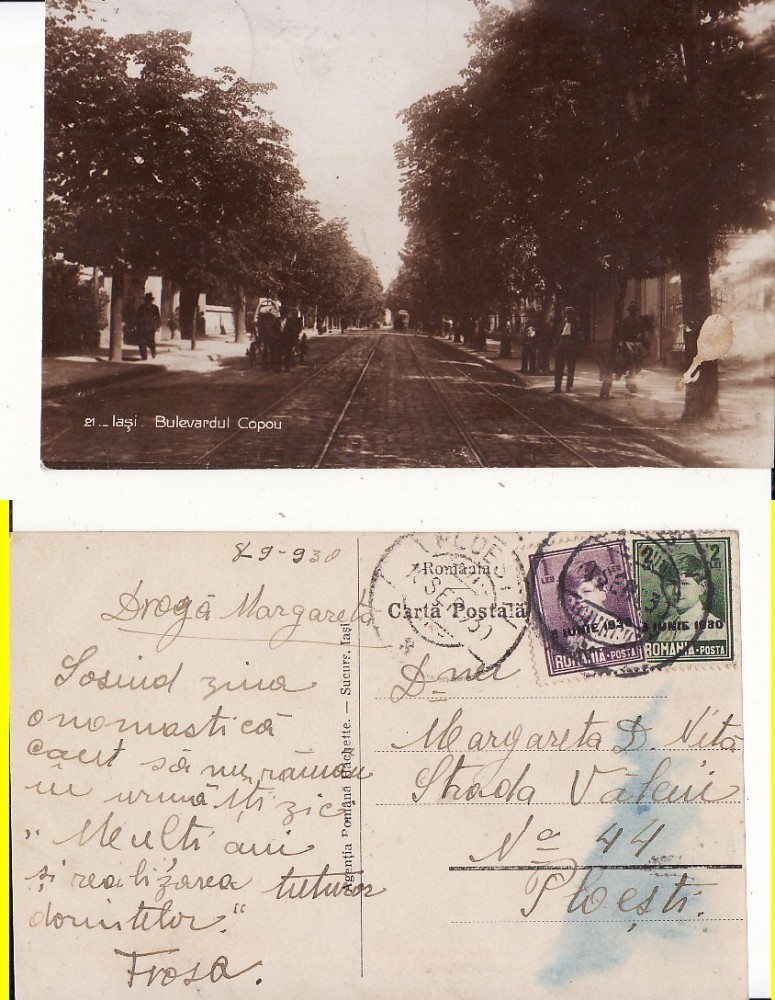 21._ Iaşi. Bulevardul Copou
8 9-930
Dragă Margareta
Sosind ziua
onomastică
caut să nu rămân
în urmă Iţi zic
„Mulţi ani
şi realizarea tuturor
dorinţelor."
Frosa.
Agenţia Română Hachette. — Sucurs. Iaşi
România
Carta Poştală
1 LEU 1
8 IUNIE 1930
ROMÂNIA-POSTA
2 LEI 2
8 IUNIE 1930
ROMÂNIA-POSTA
D-nei
Margareta D. Niţă
Strada Văleni
No 44
Ploeşti.